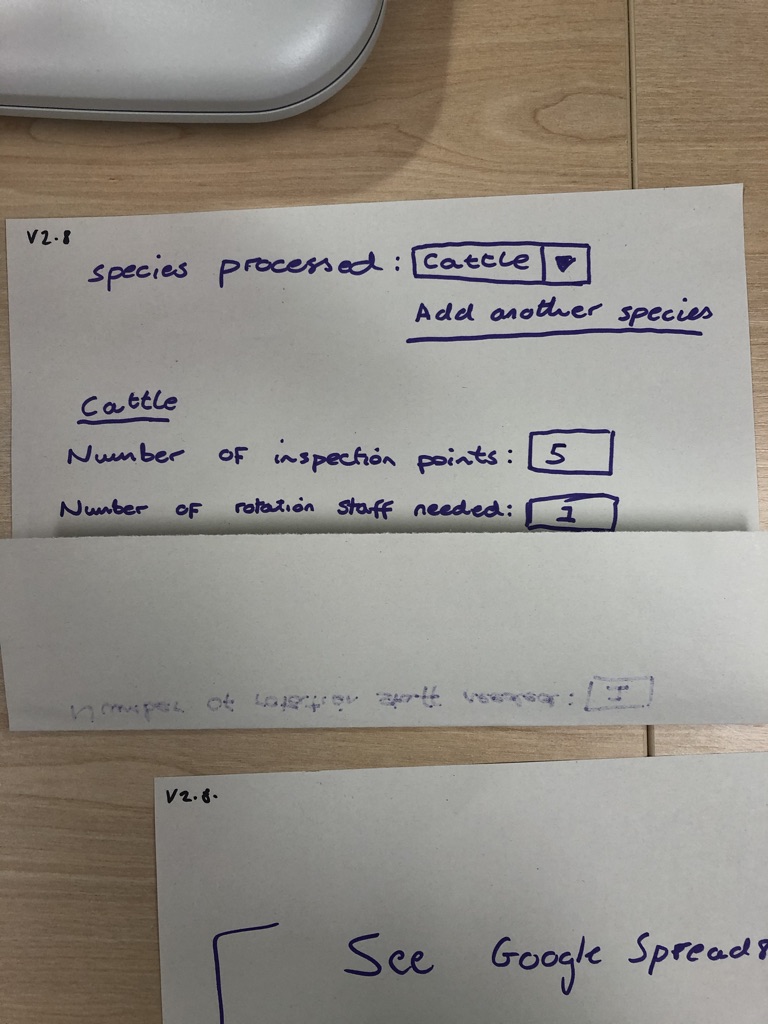 V2.8
species processed: Cattle ▼
Add another species
Cattle
Number of inspection points: 5
Number of rotation staff needed: 1
Number of rotation staff needed: 1
V2.8.
See Google Spreads